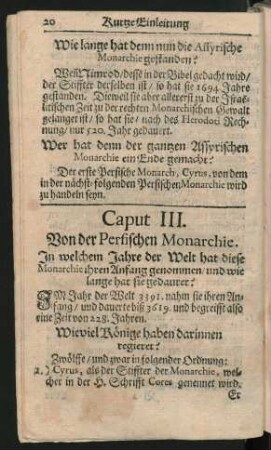 20 Kurtze Einleitung
Wie lange hat denn nun die Assyrische
Monarchie gestanden?
Weñ Nimrod/ desse in der Bibel gedacht wird/
der Stiffter derselben ist/ so hat sie 1694 Jahre
gestanden. Dieweil sie aber allererst zu der Israe-
litischen Zeit zu der rechten Monarchischen Gewalt
gelanget ist/ so hat sie/ nach des Herodoti Rech-
nung/ nur 520. Jahr gedauert.
Wer hat denn der gantzen Assyrischen
Monarchie ein Ende gemacht?
Der erste Persische Monarch, Cyrus, von dem
in der nächst-folgenden Persischen Monarchie wird
zu handeln seyn.
Caput III.
Von der Persischen Monarchie.
In welchem Jahre der Welt hat diese
Monarchie ihren Anfang genommen/ und wie
lange hat sie gedauret?
IM Jahr der Welt 3391. nahm sie ihren An-
fang/ und dauerte biß 3619. und begreifft also
eine Zeit von 228. Jahren.
Wieviel Könige haben darinnen
regieret?
Zwölffe/ und zwar in folgender Ordnung:
1.) Cyrus, als der Stiffter der Monarchie, wel-
cher in der H. Schrifft Cores genennet wird.
Er